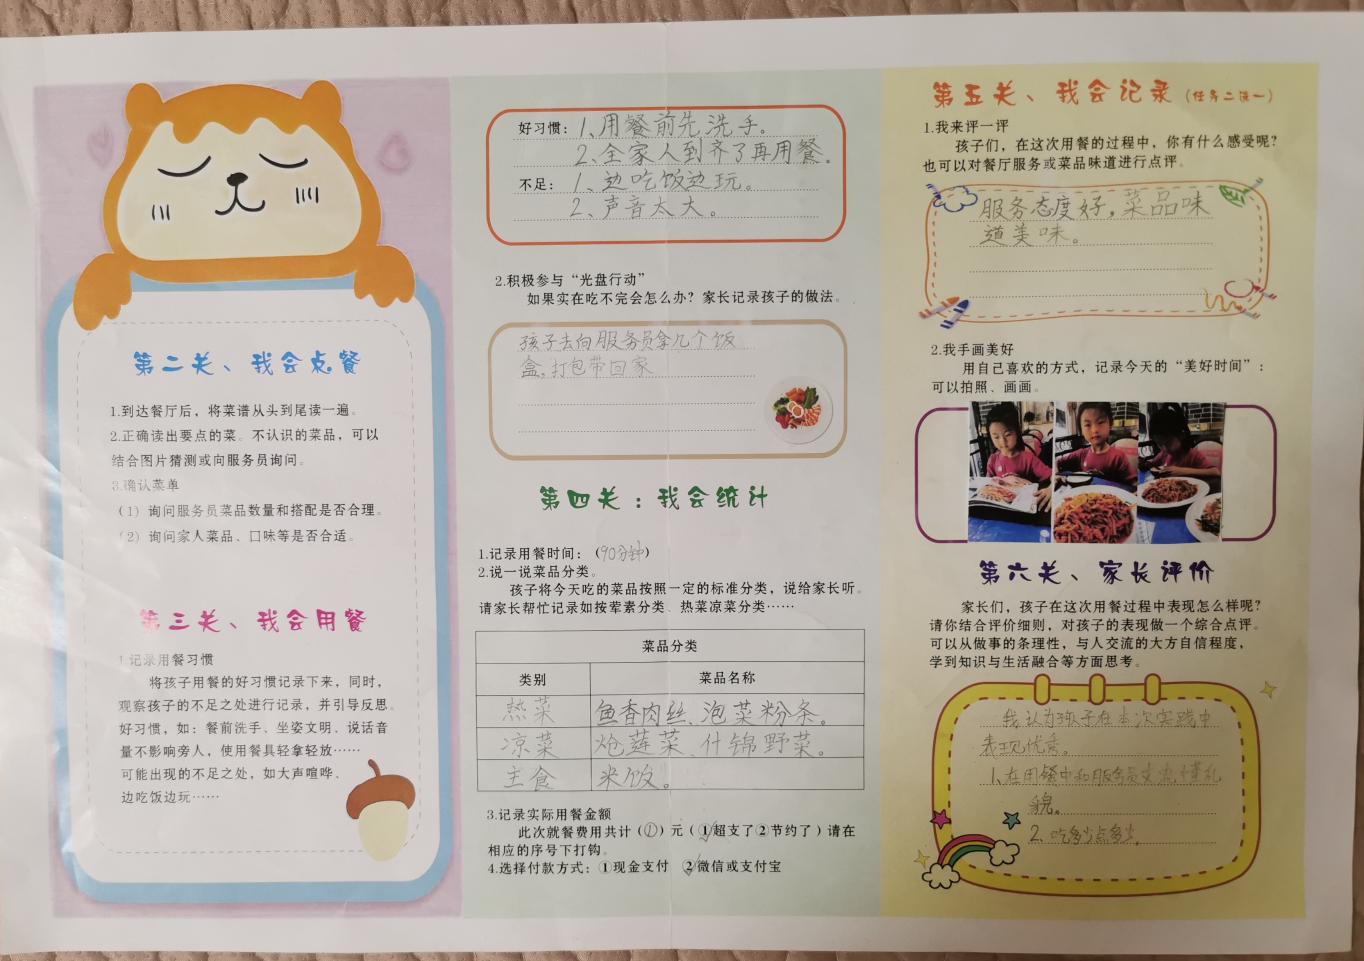 第二关、我会点餐
1.到达餐厅后，将菜谱从头到尾读一遍。
2.正确读出要点的菜。不认识的菜品，可以
结合图片猜测或向服务员询问。
3.确认菜单
（1）询问服务员菜品数量和搭配是否合理。
（2）询问家人菜品、口味等是否合适。
第三关、我会用餐
1.记录用餐习惯
将孩子用餐的好习惯记录下来，同时，
观察孩子的不足之处进行记录，并引导反思。
好习惯，如：餐前洗手、坐姿文明、说话音
量不影响旁人，使用餐具轻拿轻放……
可能出现的不足之处，如大声喧哗、
边吃饭边玩……
好习惯：1、用餐前先洗手。
2、全家人到齐了再用餐。
不足：1、边吃饭边玩。
2、声音太大。
2.积极参与“光盘行动”
如果实在吃不完会怎么办？家长记录孩子的做法。
孩子去向服务员拿几个饭
盒，打包带回家
第四关：我会统计
1.记录用餐时间：（90分钟）
2.说一说菜品分类。
孩子将今天吃的菜品按照一定的标准分类，说给家长听。
请家长帮忙记录如按荤素分类、热菜凉菜分类……
菜品分类
类别 菜品名称
热菜 鱼香肉丝、泡菜粉条。
凉菜 炝莲菜、什锦野菜。
主食 米饭。
3.记录实际用餐金额
此次就餐费用共计（）元（①超支了②节约了）请在
相应的序号下打钩。
4.选择付款方式：①现金支付 ②微信或支付宝
第五关、我会记录（任务二选一）
1.我来评一评
孩子们，在这次用餐的过程中，你有什么感受呢？
也可以对餐厅服务或菜品味道进行点评。
服务态度好，菜品味
道美味。
2.我手画美好
用自己喜欢的方式，记录今天的“美好时间”：
可以拍照、画画。
第六关、家长评价
家长们，孩子在这次用餐过程中表现怎么样呢？
请你结合评价细则，对孩子的表现做一个综合点评。
可以从做事的条理性，与人交流的大方自信程度，
学到知识与生活融合等方面思考。
我认为孩子在本次实践中
表现优秀。
1、在用餐中和服务员交流，懂礼
貌。
2、吃多少点多少。